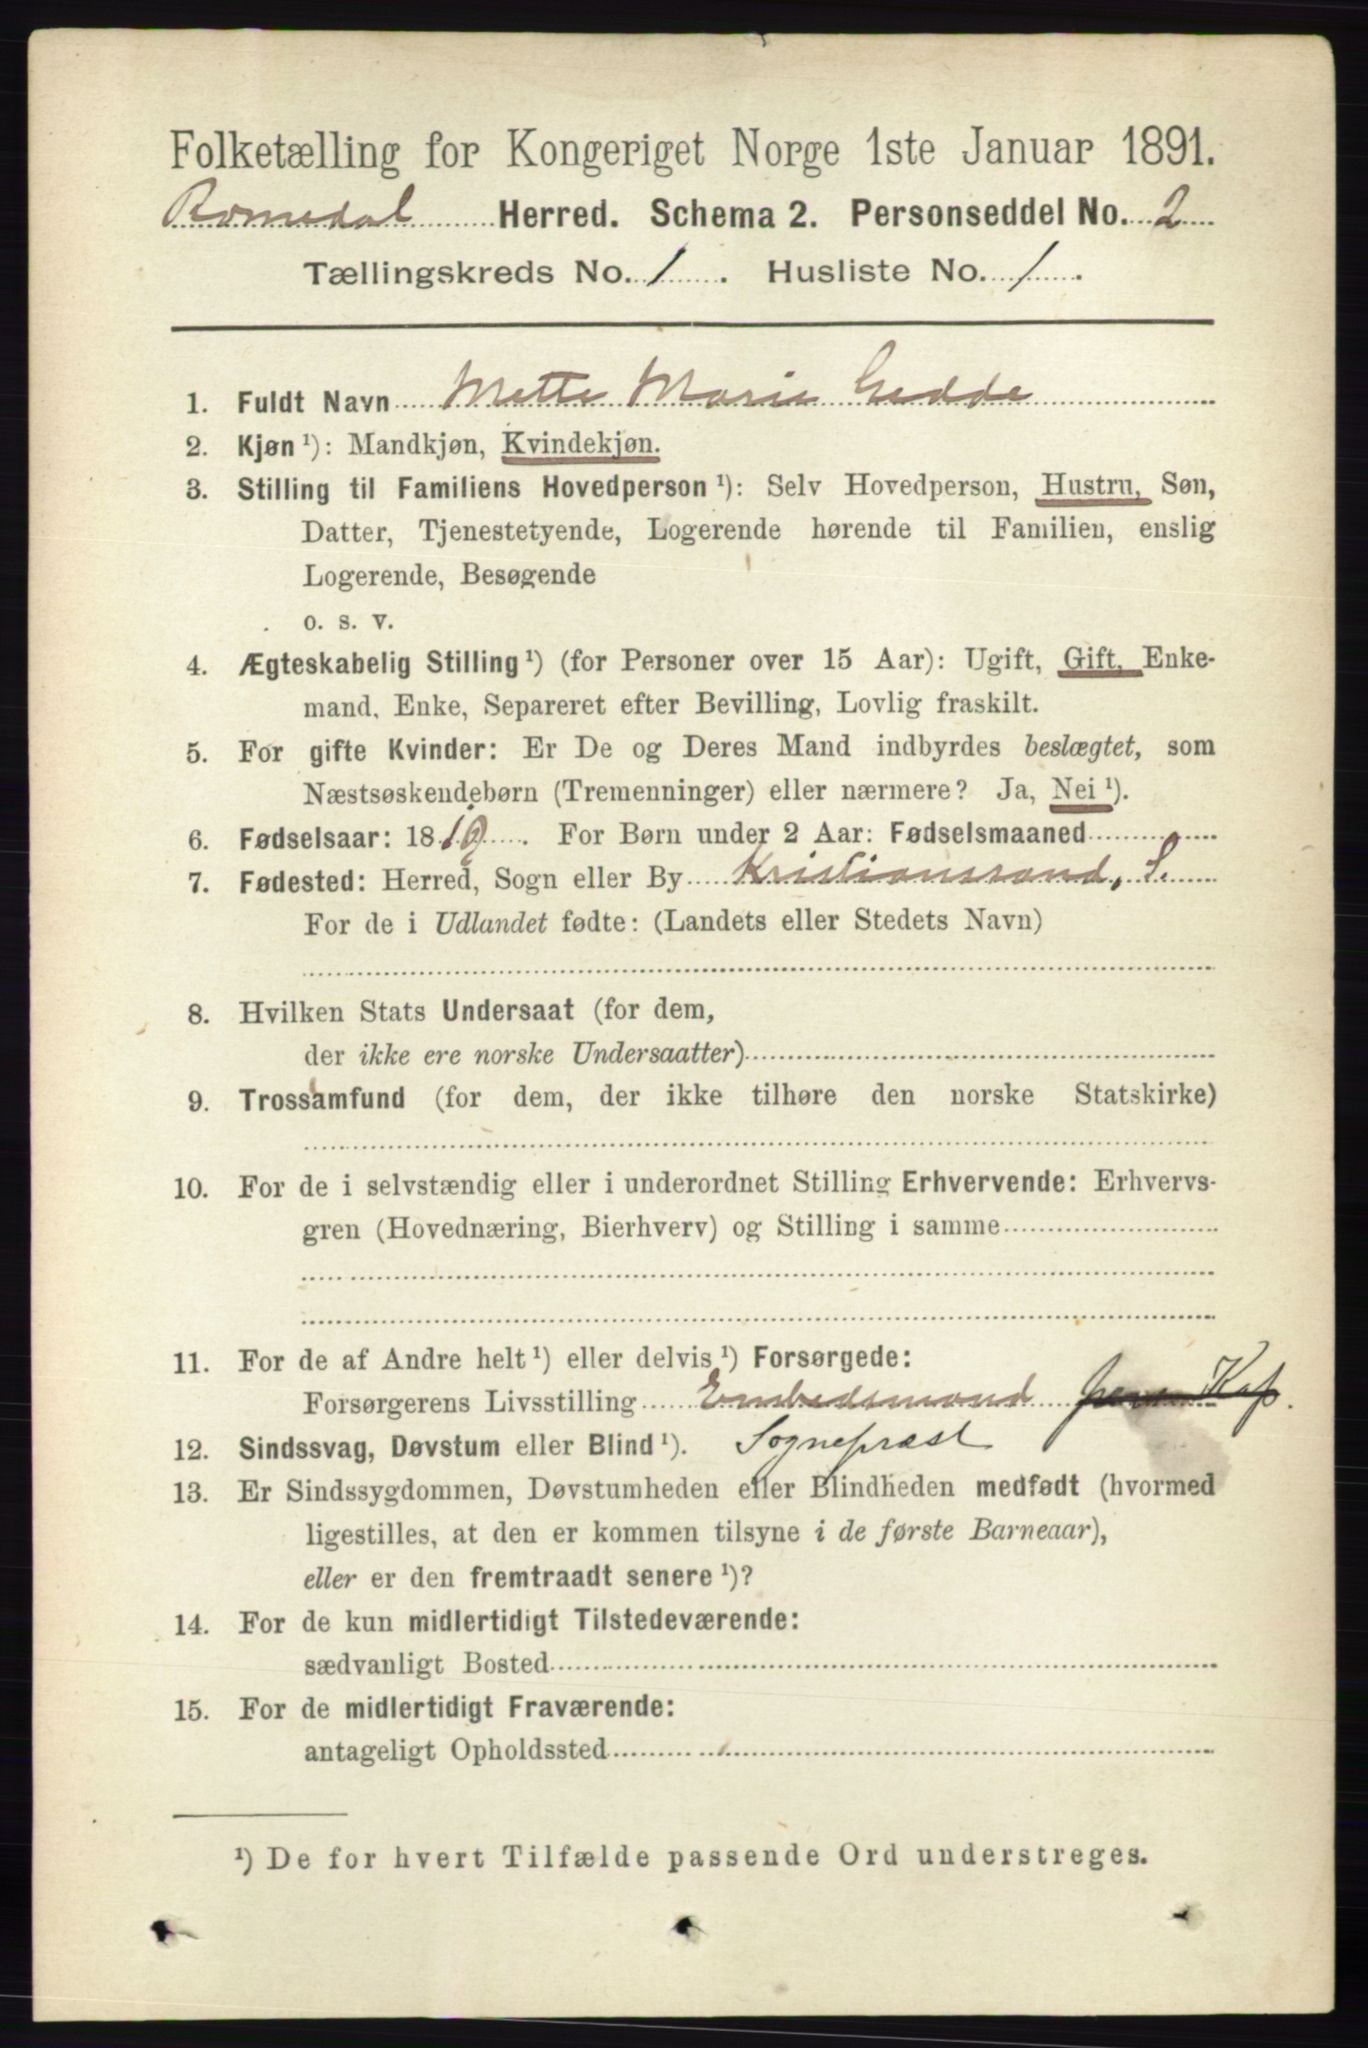 Folketælling for Kongeriget Norge 1ste Januar 1891.
Romedal Herred. Schema 2. Personseddel No. 2
Tællingskreds No. 1. Husliste No. 1.
1. Fuldt Navn Mette Marie Gedde
2. Kjøn ¹): Mandkjøn, Kvindekjøn.
3. Stilling til Familiens Hovedperson ¹): Selv Hovedperson, Hustru, Søn,
Datter, Tjenestetyende, Logerende hørende til Familien, enslig
Logerende, Besøgende
o. s. v.
4. Ægteskabelig Stilling ¹) (for Personer over 15 Aar): Ugift, Gift, Enke-
mand, Enke, Separeret efter Bevilling, Lovlig fraskilt.
5. For gifte Kvinder: Er De og Deres Mand indbyrdes beslægtet, som
Næstsøskendebørn (Tremenninger) eller nærmere? Ja, Nei ¹).
6. Fødselsaar: 1819. For Børn under 2 Aar: Fødselsmaaned
7. Fødested: Herred, Sogn eller By Kristianssand, S.
For de i Udlandet fødte: (Landets eller Stedets Navn)
8. Hvilken Stats Undersaat (for dem,
der ikke ere norske Undersaatter)
9. Trossamfund (for dem, der ikke tilhøre den norske Statskirke)
10. For de i selvstændig eller i underordnet Stilling Erhvervende: Erhvervs-
gren (Hovednæring, Bierhverv) og Stilling i samme
11. For de af Andre helt ¹) eller delvis ¹) Forsørgede:
Forsørgerens Livsstilling Embedsmand Kap.
12. Sindssvag, Døvstum eller Blind ¹). Sognepræst
13. Er Sindssygdommen, Døvstumheden eller Blindheden medfødt (hvormed
ligestilles, at den er kommen tilsyne i de første Barneaar),
eller er den fremtraadt senere ¹)?
14. For de kun midlertidigt Tilstedeværende:
sædvanligt Bosted
15. For de midlertidigt Fraværende:
antageligt Opholdssted
¹) De for hvert Tilfælde passende Ord understreges.